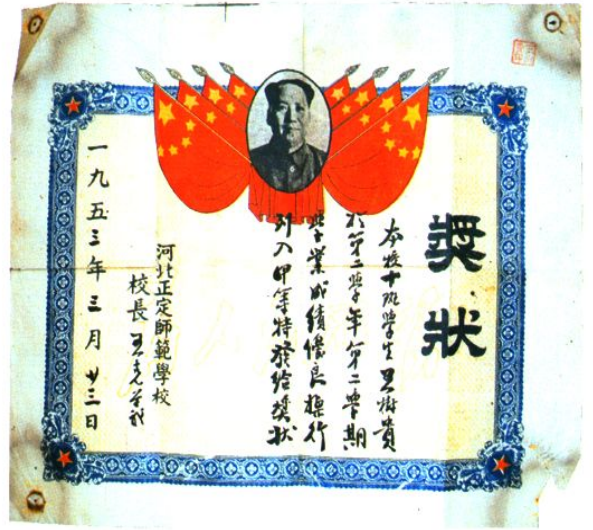 獎狀
本校十班學生王樹貴
於第二學年第二學期
學業成績優良操行
列入甲等特發給獎狀
河北正定師範學校
校長王
一九五三年三月廿三日